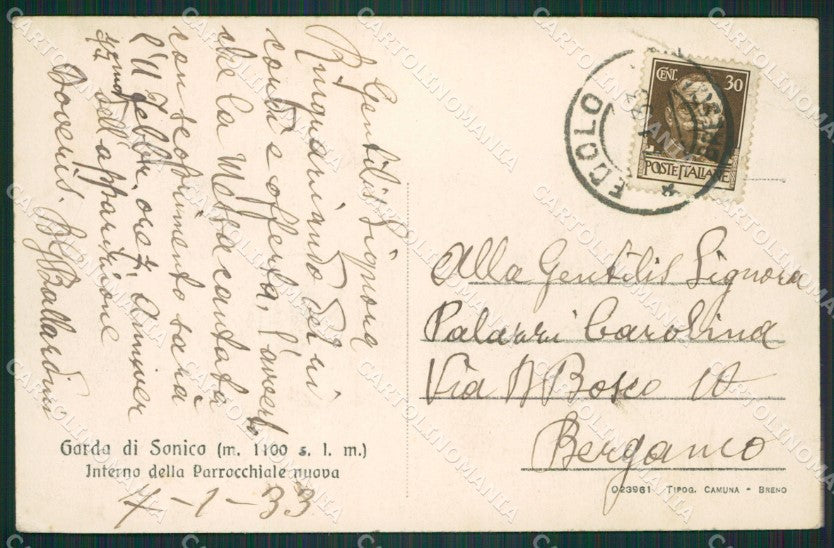 Gentilis. Signora
Ringraziando per i
conti e offerta, l'averto
che la Messa cantata
con scoprimento sarà
l'11 Febbr. ore 7 anniver
dell'apparizione
Doveris.
Garda di Sonico (m. 1100 s. l. m.)
Interno della Parrocchiale nuova
17-1-33
EDOLO
CENT. 30
POSTE ITALIANE
Alla Gentilis Signora
Palazzi Carolina
Via A Bosco 10
Bergamo
023961 TIPOG. CAMUNA - BRENO
CARTOLINOMANIA